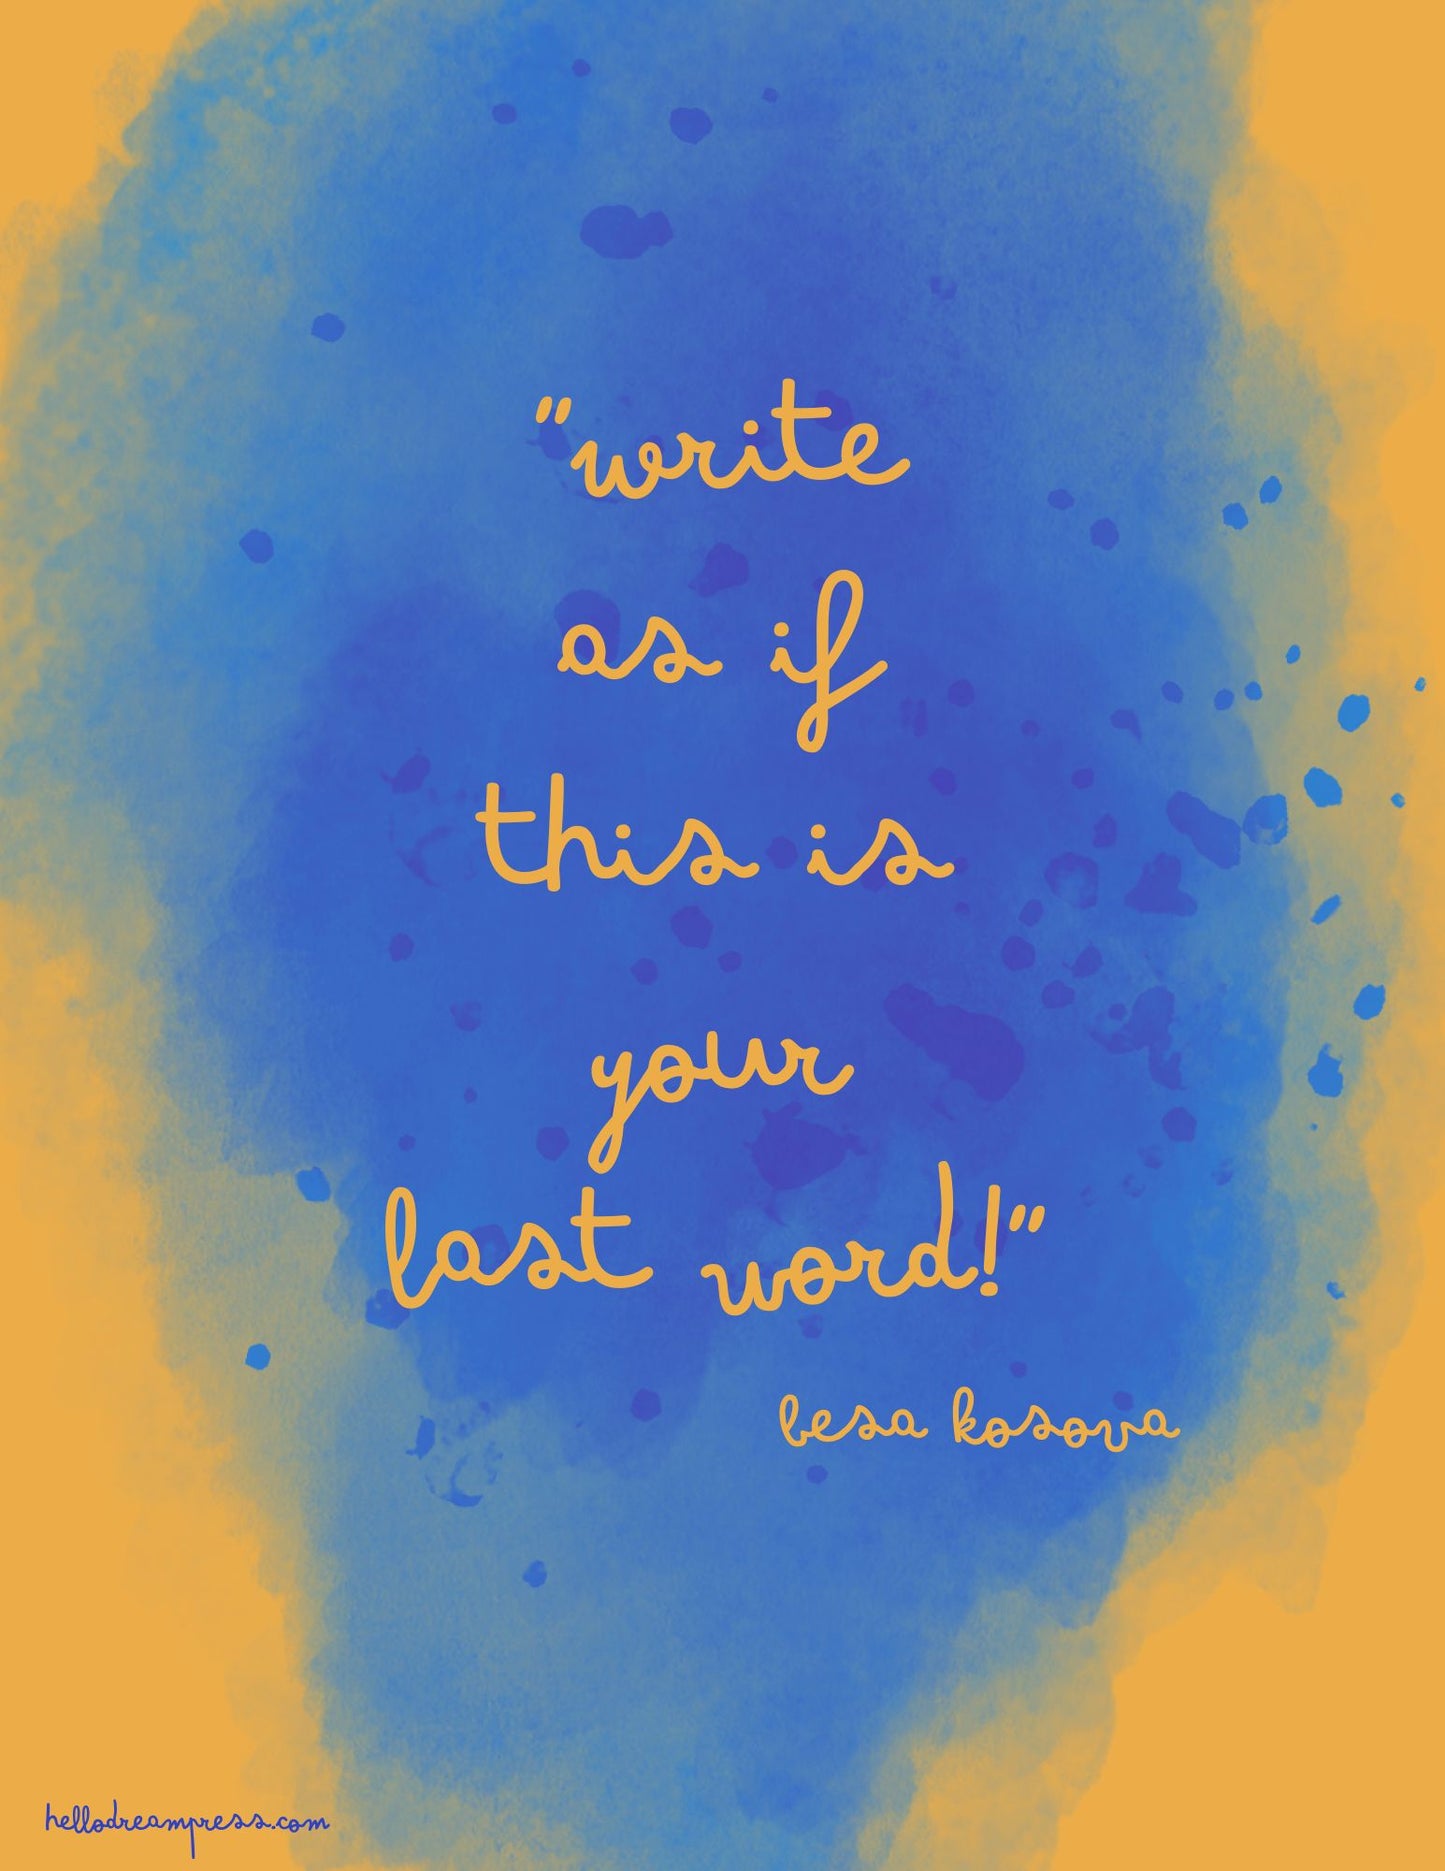 "write
as if
this is
your
last word!"
besa kosova
hellodreampress.com